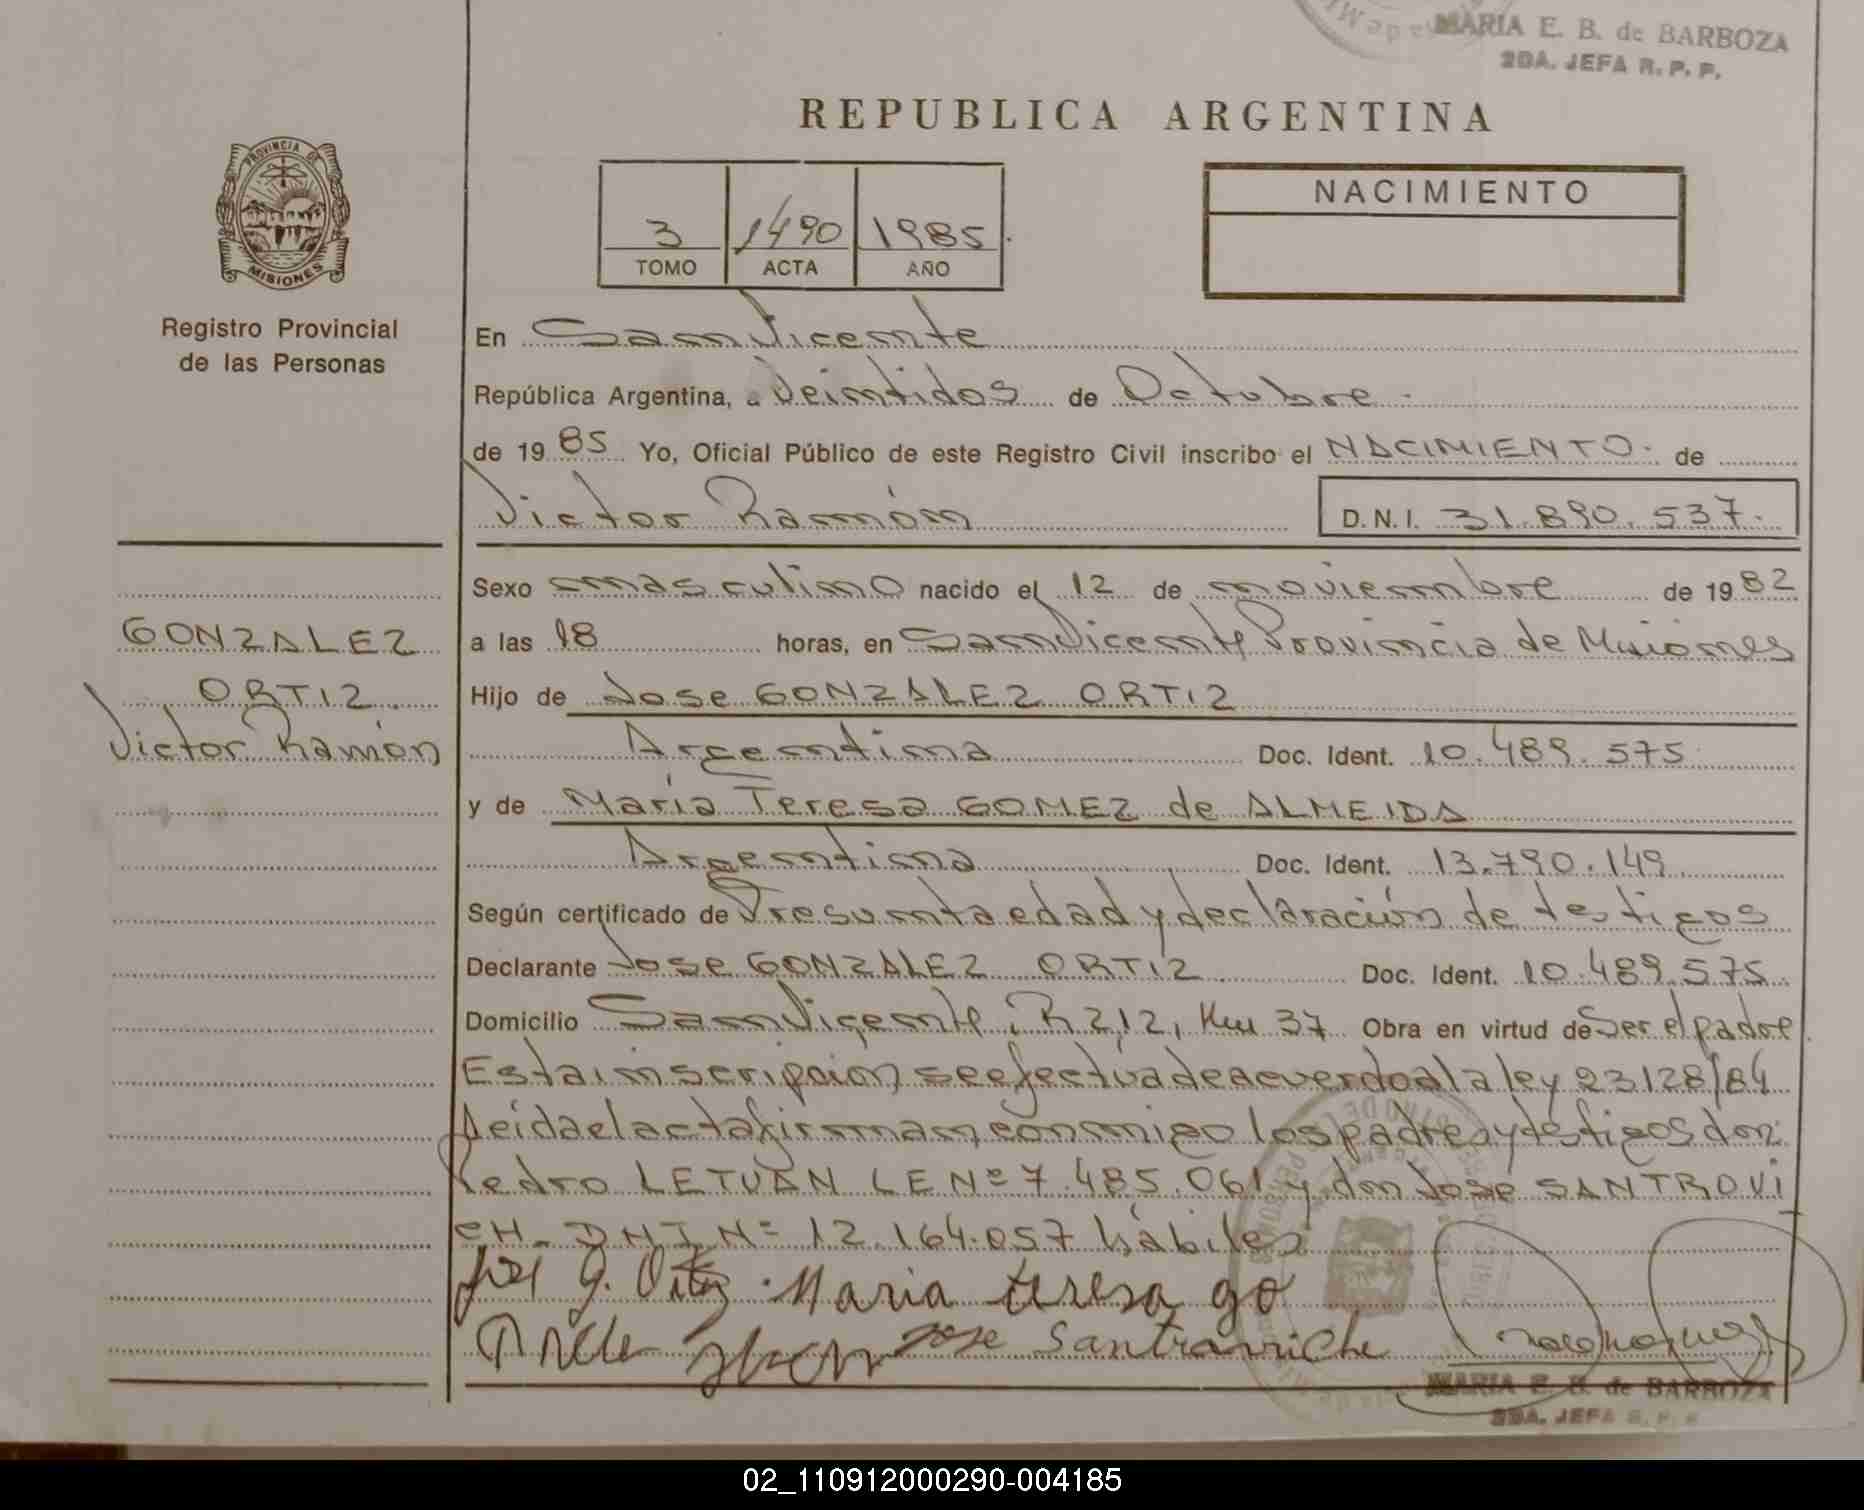 MARIA E. B. de BARBOZA
2DA. JEFA R. P. P.
REPUBLICA ARGENTINA
PROVINCIA DE
MISIONES
Registro Provincial
de las Personas
3 1490 1985
TOMO ACTA AÑO
NACIMIENTO
En San Vicente
República Argentina, a Veintidos de Octubre
de 1985 Yo, Oficial Público de este Registro Civil inscribo el NACIMIENTO de
Victor Ramón D.N.I. 31.890.537.
GONZALEZ
ORTIZ
Victor Ramón
Sexo masculino nacido el 12 de noviembre de 1982
a las 18 horas, en San Vicente Provincia de Misiones
Hijo de Jose GONZALEZ ORTIZ
Argentina Doc. Ident. 10.489.575
y de María Teresa GOMEZ de ALMEIDA
Argentina Doc. Ident. 13.790.149
Según certificado de Presunta edad y declaración de testigos
Declarante Jose GONZALEZ ORTIZ Doc. Ident. 10.489.575
Domicilio San Vicente, R 212, Km 37 Obra en virtud de Ser el padre
Esta inscripción se efectúa de acuerdo a la ley 23128/84
Leida el acta firman conmigo los padres y testigos don
Pedro LETUAN LE Nº 7.485.061 y don Jose SANTROVI
CH_ DNI Nº 12.164.057 hábiles
Jose G. Ortiz Maria teresa go
Jose Santrarriche
MARIA E. B. de BARBOZA
2DA. JEFA R. P. P.
02_110912000290-004185